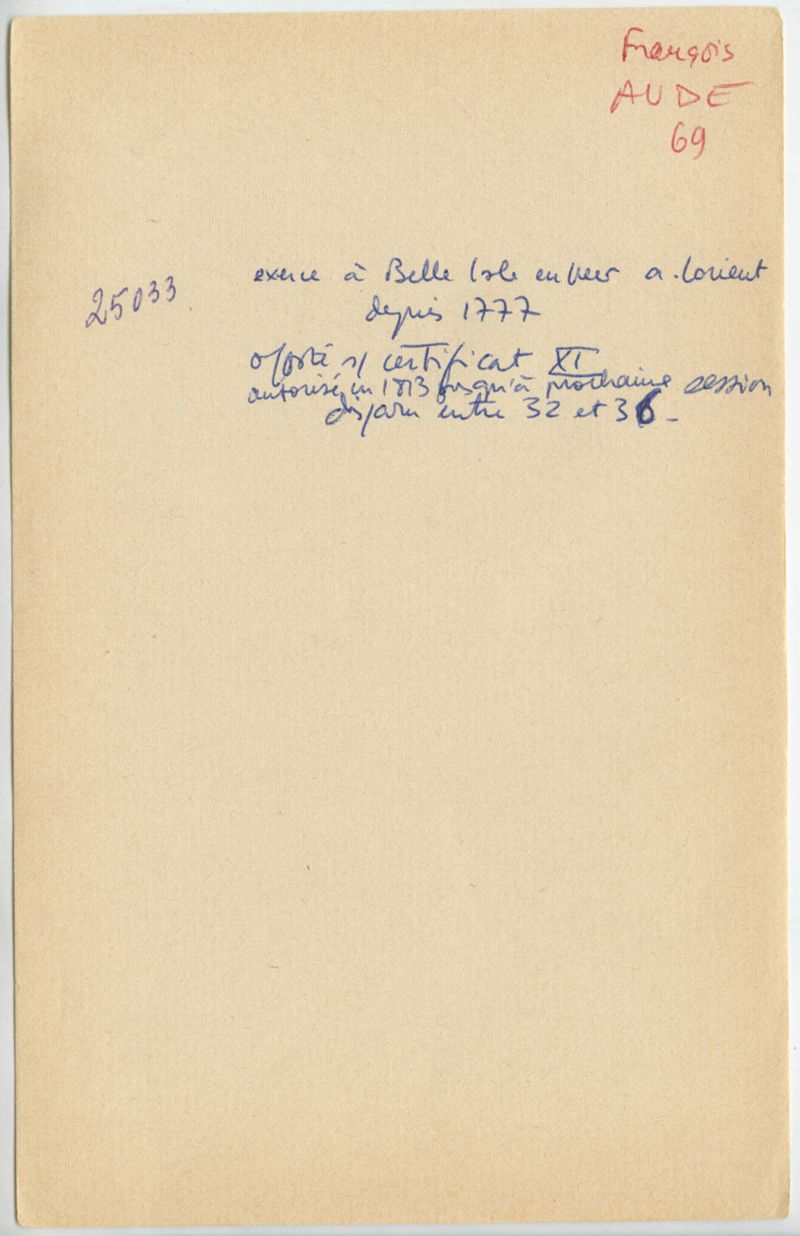 François
AUDE
69
25033
exerce à Belle Isle en mer a. Lorient
depuis 1777
s/ certificat XI
autorisé en 1813 jusqu'à prochaine session
disparu entre 32 et 36 -